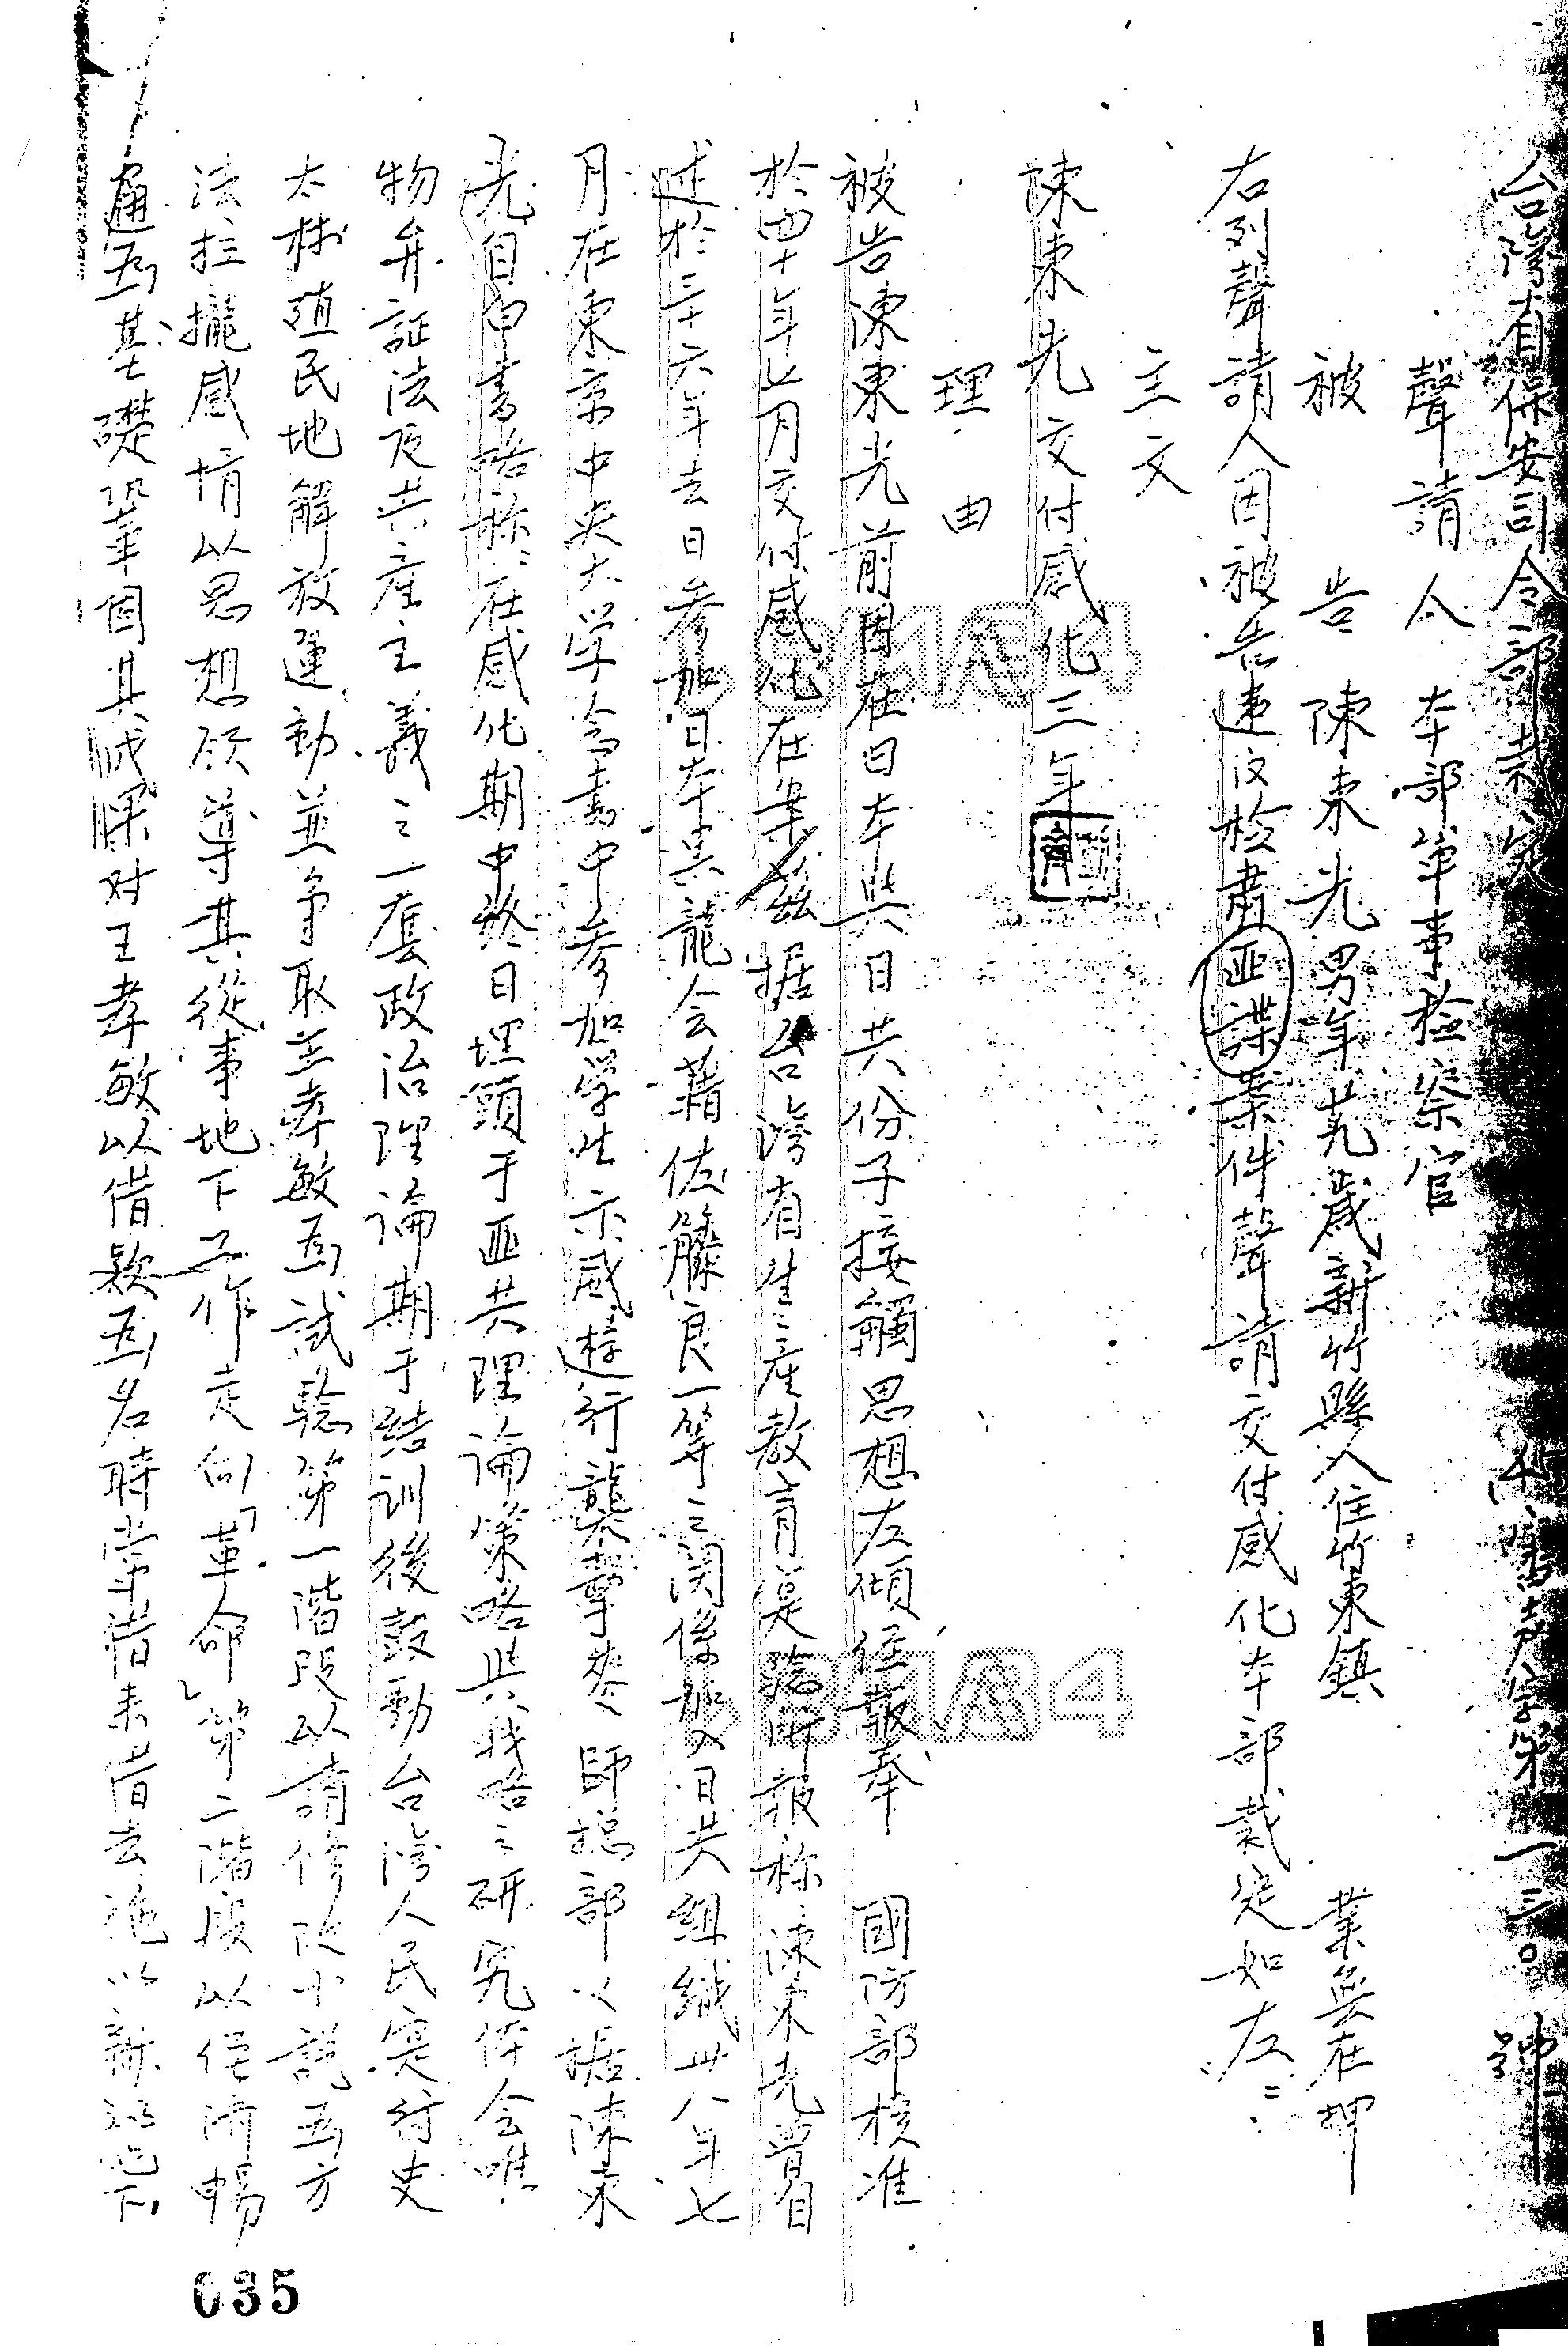 台灣省保安司令部裁定 審声字第一三〇號
聲請人 本部軍事檢察官
被告 陳東光 男年 歲新竹縣人住竹東鎮 業無在押
右列聲請人因被告違反檢肅匪諜案件聲請交付感化本部裁定如左：
主文
陳東光交付感化三年
理由
被告陳東光前因在日本與日共份子接觸思想左傾經報奉 國防部核准
於四十年七月交付感化在案茲据台灣省生產教育實驗所報称陳東光曾自
述於三十六年去日參加日本共龍会藉佐籐良一等之関係加入日共組織卅八年七
月在東京中央大学念書中參加学生示威遊行襲擊麥 師総部又据陳東
光自白書略称：在感化期中終日埋頭于匪共理論策略與戰略之研究体会唯
物弁証法及共產主義之一套政治理論期于結訓後鼓動台灣人民实行史
太林殖民地解放運動並争取王孝敏為試驗第一階段以請修改小説為方
法拉攏感情以思想領導其從事地下工作走向「革命」第二階段以經濟暢
通為基礎鞏固其成果对王孝敏以借款為名時常借來借去 以 地下
035